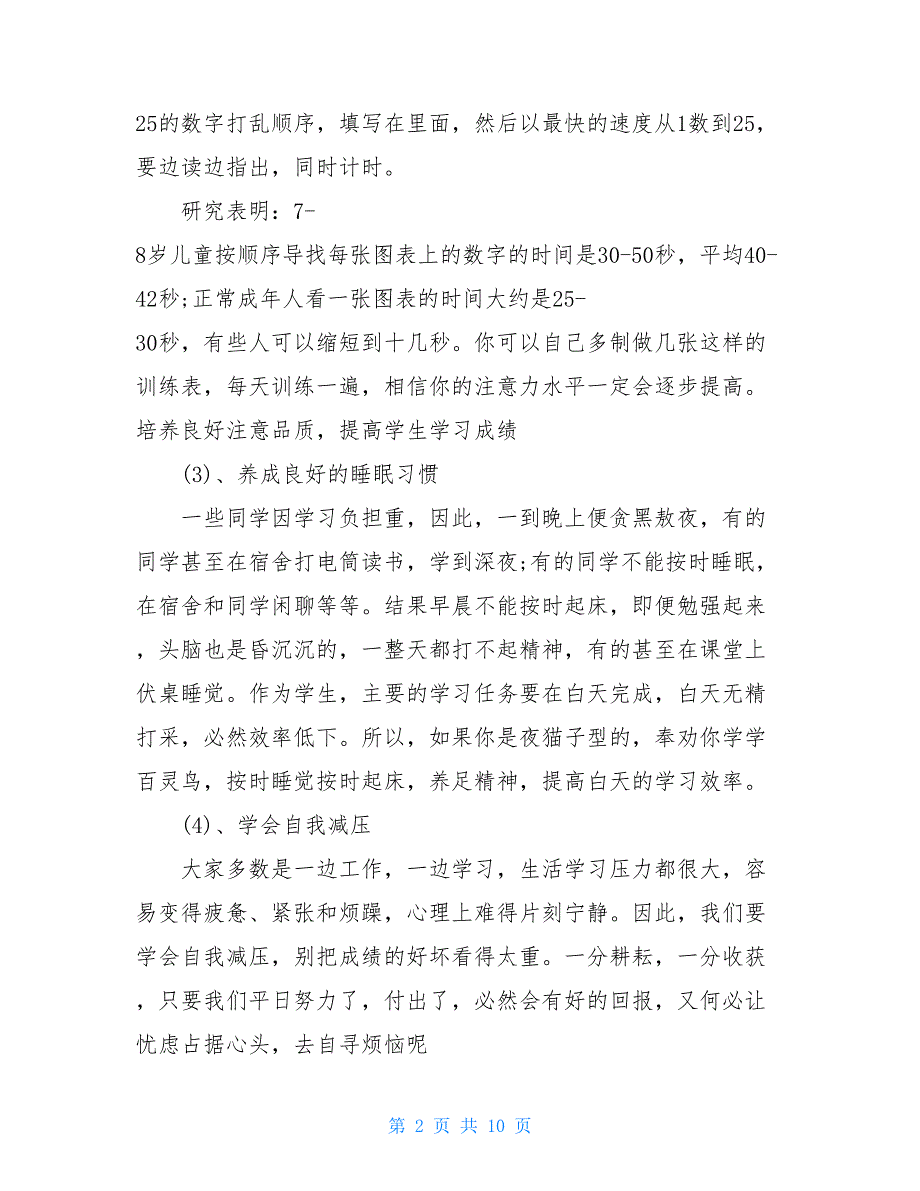 25的数字打乱顺序，填写在里面，然后以最快的速度从1数到25，
要边读边指出，同时计时。
研究表明：7-
8岁儿童按顺序导找每张图表上的数字的时间是30-50秒，平均40-
42秒;正常成年人看一张图表的时间大约是25-
30秒，有些人可以缩短到十几秒。你可以自己多制做几张这样的
训练表，每天训练一遍，相信你的注意力水平一定会逐步提高。
培养良好注意品质，提高学生学习成绩
(3)、养成良好的睡眠习惯
一些同学因学习负担重，因此，一到晚上便贪黑熬夜，有的
同学甚至在宿舍打电筒读书，学到深夜;有的同学不能按时睡眠，
在宿舍和同学闲聊等等。结果早晨不能按时起床，即便勉强起来
，头脑也是昏沉沉的，一整天都打不起精神，有的甚至在课堂上
伏桌睡觉。作为学生，主要的学习任务要在白天完成，白天无精
打采，必然效率低下。所以，如果你是夜猫子型的，奉劝你学学
百灵鸟，按时睡觉按时起床，养足精神，提高白天的学习效率。
(4)、学会自我减压
大家多数是一边工作，一边学习，生活学习压力都很大，容
易变得疲惫、紧张和烦躁，心理上难得片刻宁静。因此，我们要
学会自我减压，别把成绩的好坏看得太重。一分耕耘，一分收获
，只要我们平日努力了，付出了，必然会有好的回报，又何必让
忧虑占据心头，去自寻烦恼呢
第 2 页 共 10 页